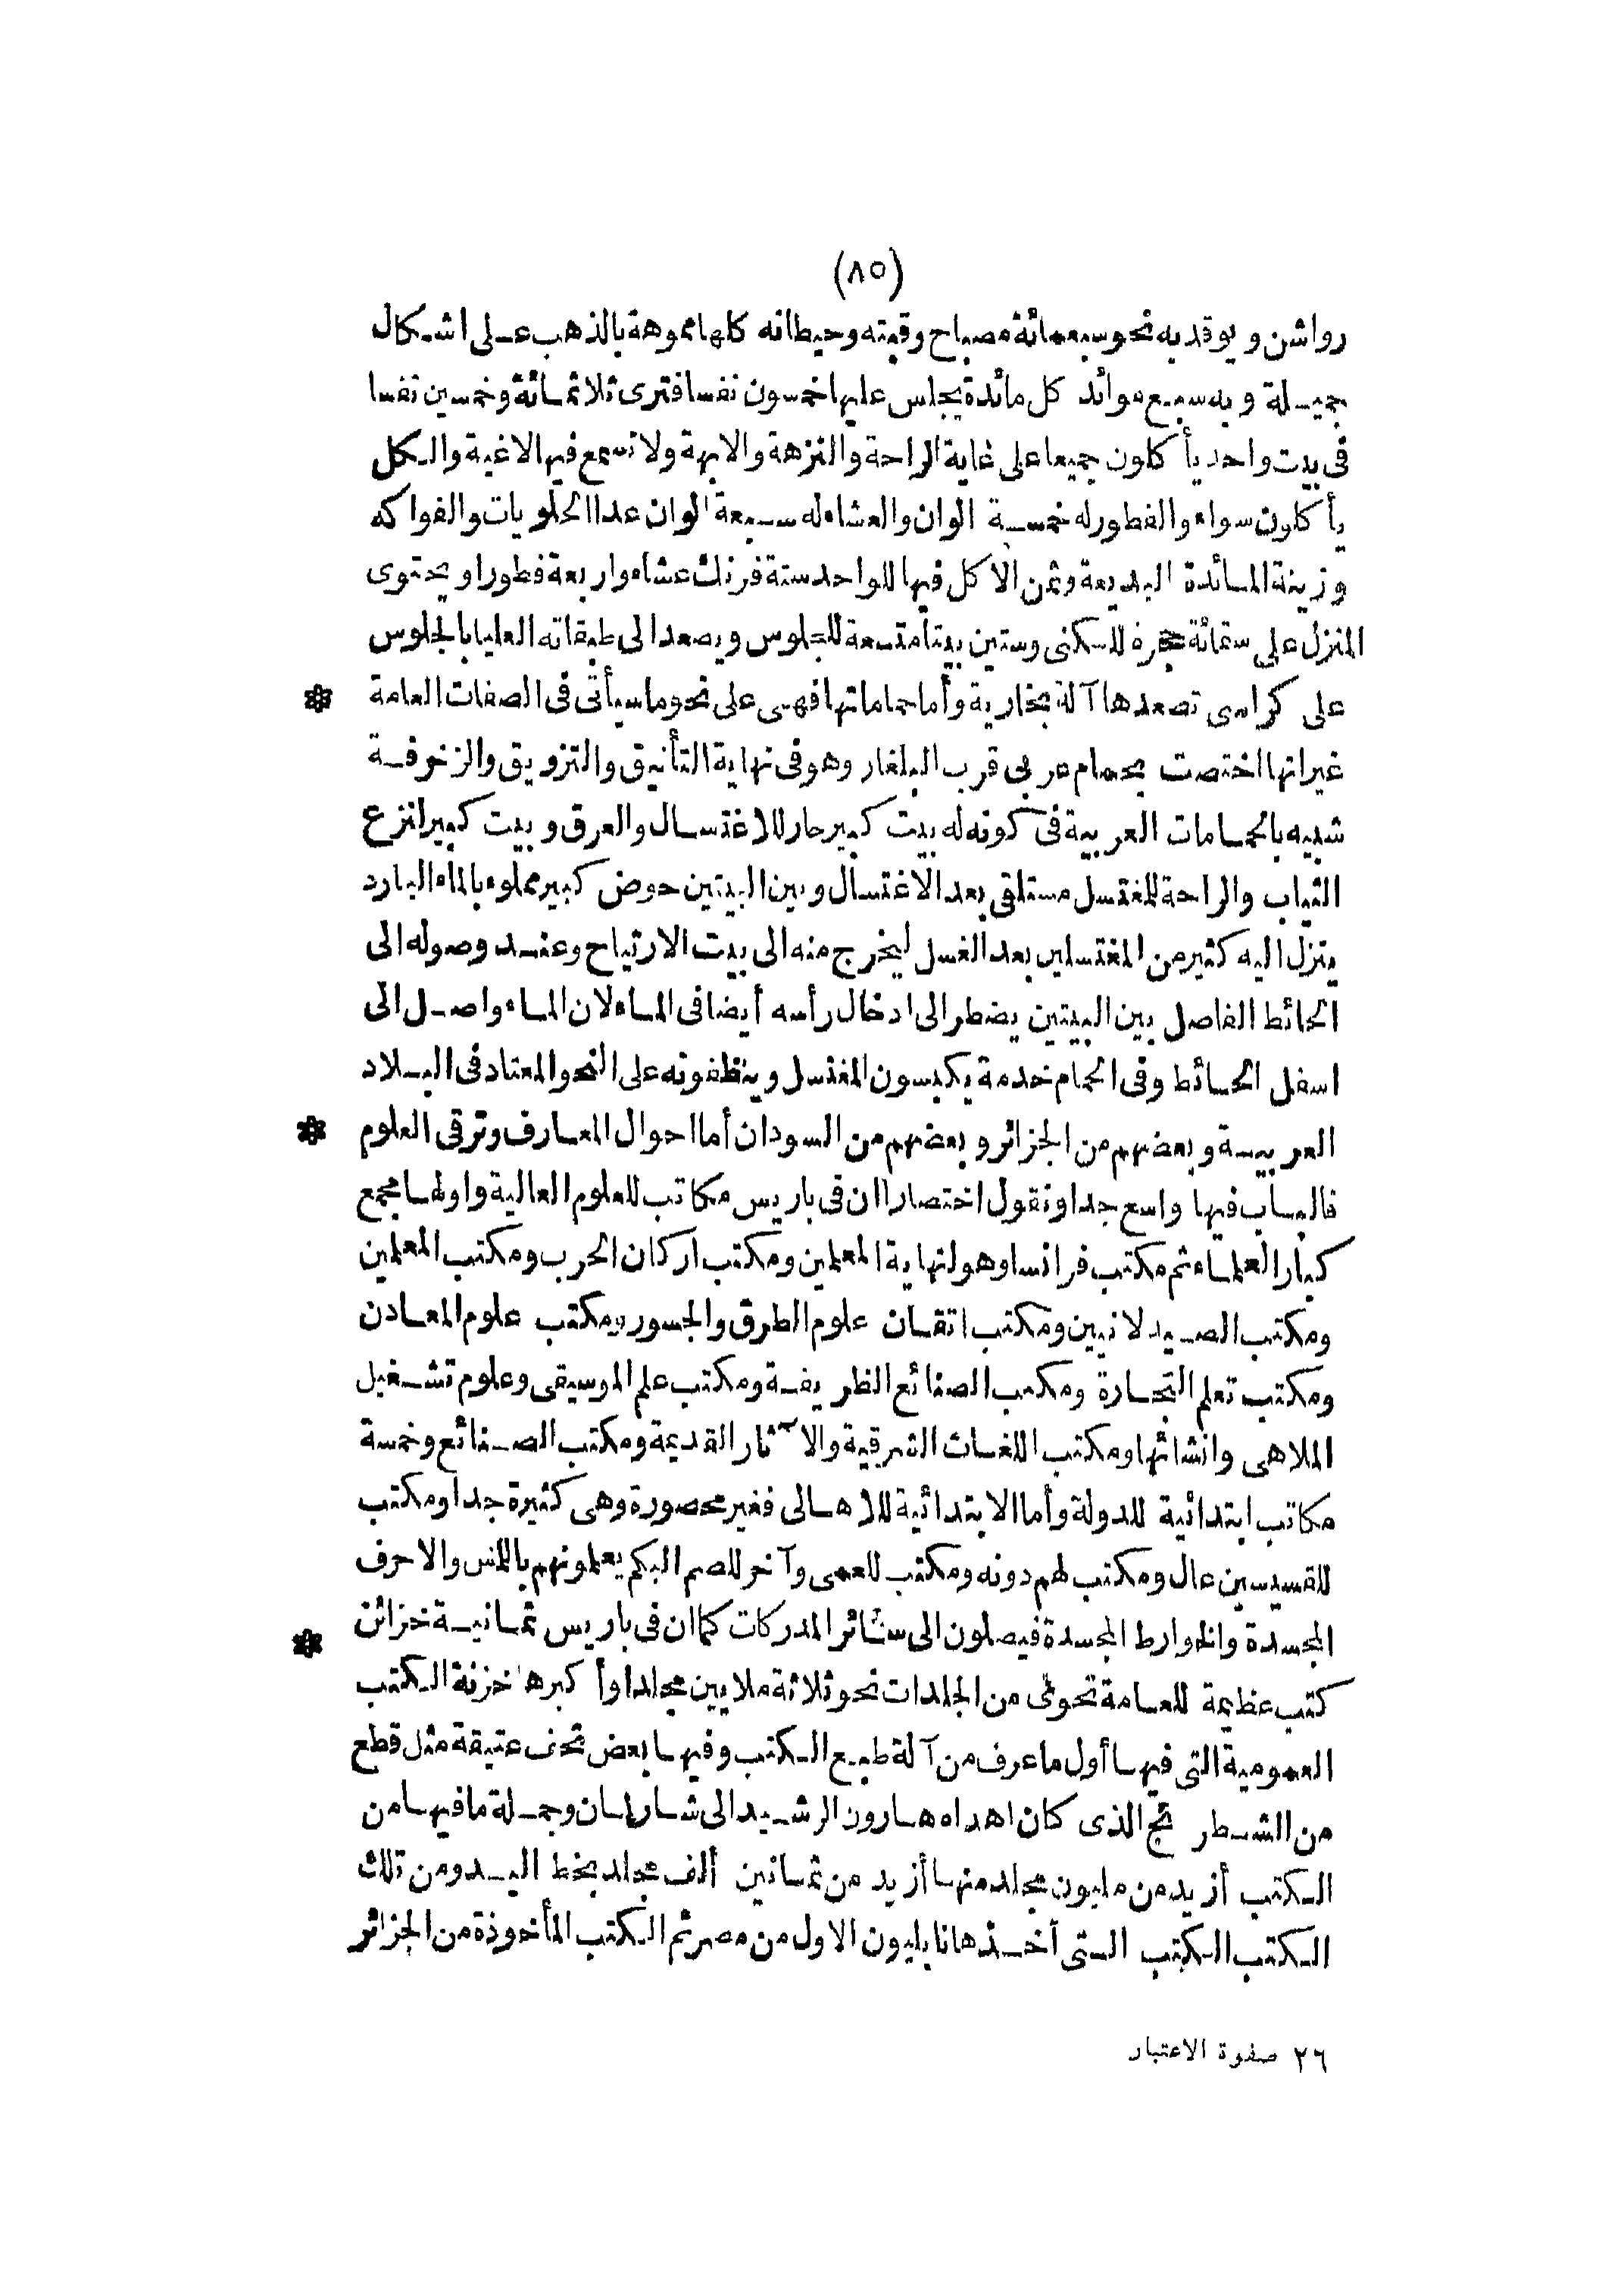 (٨٥)
رواشن ويوقد به نحو سبعمائة مصباح وقبته وحيطانه كلها مموهة بالذهب على اشكال
جميلة وبه سبع موائد كل مائدة يجلس عليها خمسون نفسا فترى ثلاثمائة وخمسين نفسا
فى بيت واحد يأكلون جميعا على غاية الراحة والنزهة والابهة ولا تسمع فيها لاغية والكل
يأكلون سواء والفطور له خمسة الوان والعشاء له سبعة الوان عدا الحلويات والفواكه
وزينة المائدة البديعة وثمن الاكل فيها للواحد ستة فرنك عشاء واربعة فطورا ويحتوى
المنزل على ستمائة حجرة للسكنى وستين بيتا متسعة للجلوس ويصعد الى طبقاته العليا بالجلوس
على كراسى تصعدها آلة بخارية وأما حماماتها فهى على نحو ما سيأتى فى الصفات العامة ❃
غير انها اختصت بحمام عربى قرب البلفار وهو فى نهاية التأنيق والتزويق والزخرفة
شبيه بالحمامات العربية فى كونه له بيت كبير حار للاغتسال والعرق وبيت كبير لنزع
الثياب والراحة للمغتسل مستلقى بعد الاغتسال وبين البيتين حوض كبير مملوء بالماء البارد
ينزل اليه كثير من المغتسلين بعد الغسل ليخرج منه الى بيت الارتياح وعند وصوله الى
الحائط الفاصل بين البيتين يضطر الى ادخال رأسه أيضا فى الماء لان الماء واصل الى
اسفل الحائط وفى الحمام خدمة يكبسون المغتسل وينظفونه على النحو المعتاد فى البلاد
العربية وبعضهم من الجزائر وبعضهم من السودان أما احوال المعارف وترقى العلوم ❃
فالباب فيها واسع جدا ونقول اختصارا ان فى باريس مكاتب للعلوم العالية واولها مجمع
كبار العلماء ثم مكتب فرانسا وهو لنهاية المعلمين ومكتب اركان الحرب ومكتب المعلمين
ومكتب الصيدلانيين ومكتب اتقان علوم الطرق والجسور ومكتب علوم المعادن
ومكتب تعلم التجارة ومكتب الصنائع الظريفة ومكتب علم الموسيقى وعلوم تشغيل
الملاهى وانشائها ومكتب اللغات الشرقية والآثار القديمة ومكتب الصنائع وخمسة
مكاتب ابتدائية للدولة وأما الابتدائية للاهالى فغير محصورة وهى كثيرة جدا ومكتب
للقسيسين عال ومكتب لهم دونه ومكتب للعمى وآخر للصم البكم يعلمونهم باللمس والاحرف
المجسدة والخوارط المجسدة فيصلون الى سائر المدركات كما ان فى باريس ثمانية خزائن ❃
كتب عظيمة للعامة تحوى من المجلدات نحو ثلاثة ملايين مجلدا وأكبرها خزنة الكتب
العمومية التى فيها أول ما عرف من آلة طبع الكتب وفيها بعض تحف عتيقة مثل قطع
من الشطرنج الذى كان اهداه هارون الرشيد الى شارلمان وجملة ما فيها من
الكتب أزيد من مليون مجلد منها أزيد من ثمانين ألف مجلد بخط اليد ومن تلك
الكتب الكتب التى أخذها نابليون الاول من مصر ثم الكتب المأخوذة من الجزائر
٢٦ صفوة الاعتبار